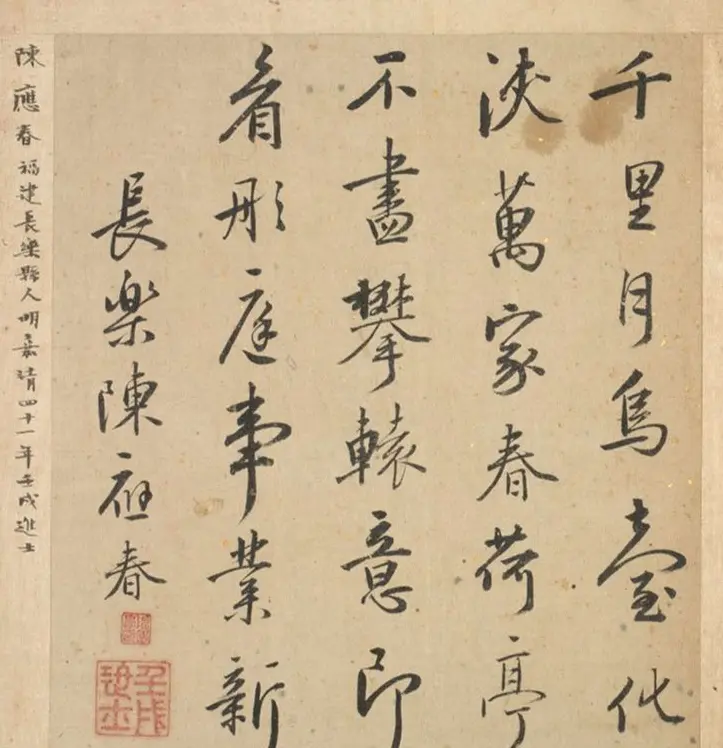 千里月烏臺化
浹萬家春荷亭
不盡攀轅意即
看彤庭事業新
長樂陳應春
壬戌進士
陳應春福建長樂縣人明嘉靖四十一年壬戌進士